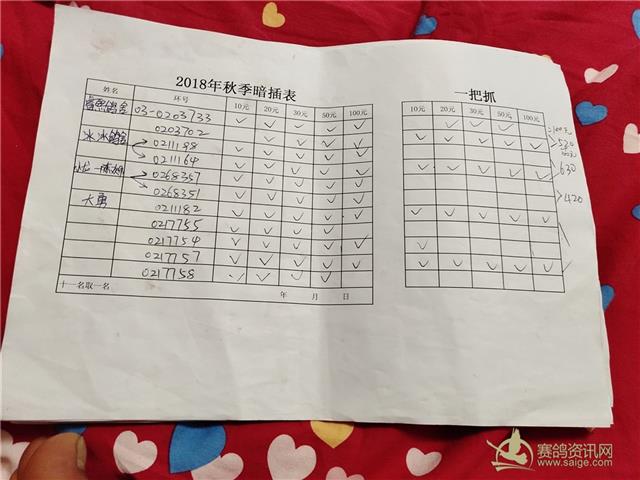 2018年秋季暗插表
姓名 环号 10元 20元 30元 50元 100元
03-0203733 ✓ ✓ ✓ ✓ ✓
0203702
冰冰鸽舍 0211198
0211164
0268357
0268351
大勇 0211182
0217755
0217754
0217757
0217758
十一名取一名 年 月 日
一把抓
10元 20元 30元 50元 100元
530
630
420
赛鸽资讯网
www.saige.com